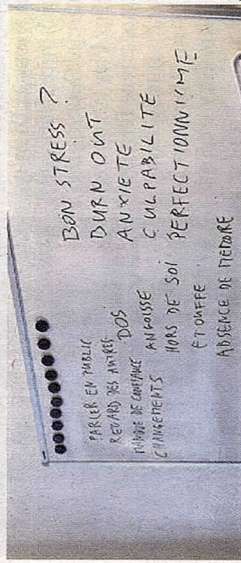 BON STRESS ?
BURN OUT
ANXIETE
CULPABILITE
PERFECTIONNI'ME
PARLER EN PUBLIC
REGARD DES AUTRES
DOS
MANQUE DE CONFIANCE
ANGOISSE
CHANGEMENTS
HORS DE SOI
ETOUFFE
ABSENCE DE